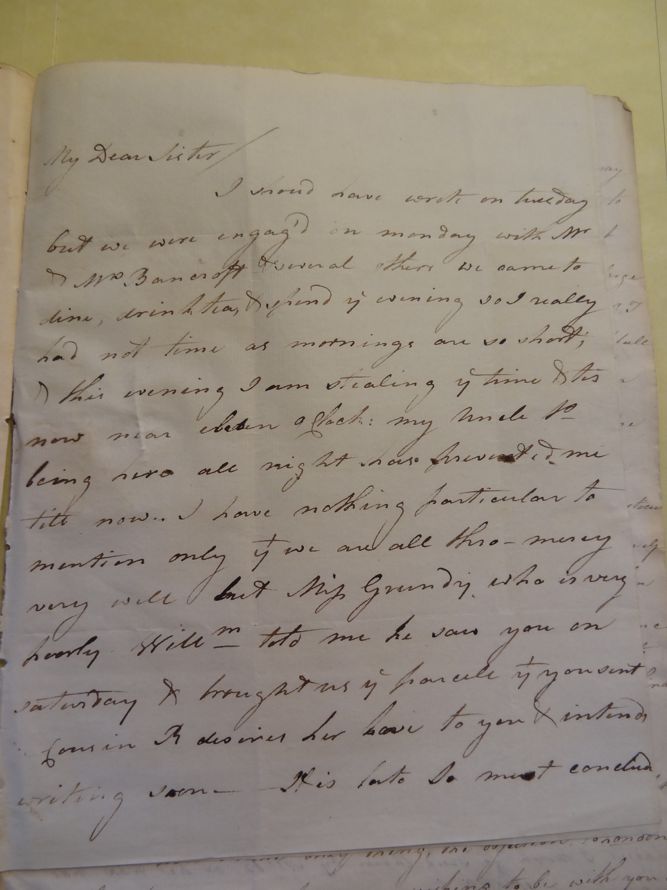 My Dear Sister/
I shou'd have wrote on tuesday
but we were engag'd on monday with Mr
& Mrs Bancroft & several others we came to
dine, drink tea, & spend ye evening so I really
had not time as mornings are so short;
& this evening I am stealing ye time & tis
now near eleven o Clock: my Uncle
being here all night has prevented me
till now.. I have nothing particular to
mention only yt we are all thro- mercy
very well but Miss Grundy, who is very
poorly Willm told me he saw you on
saturday & brought us ye parcele yt you sent
Cousin R desires her love to you & intends
writing soon — It is late So must conclud